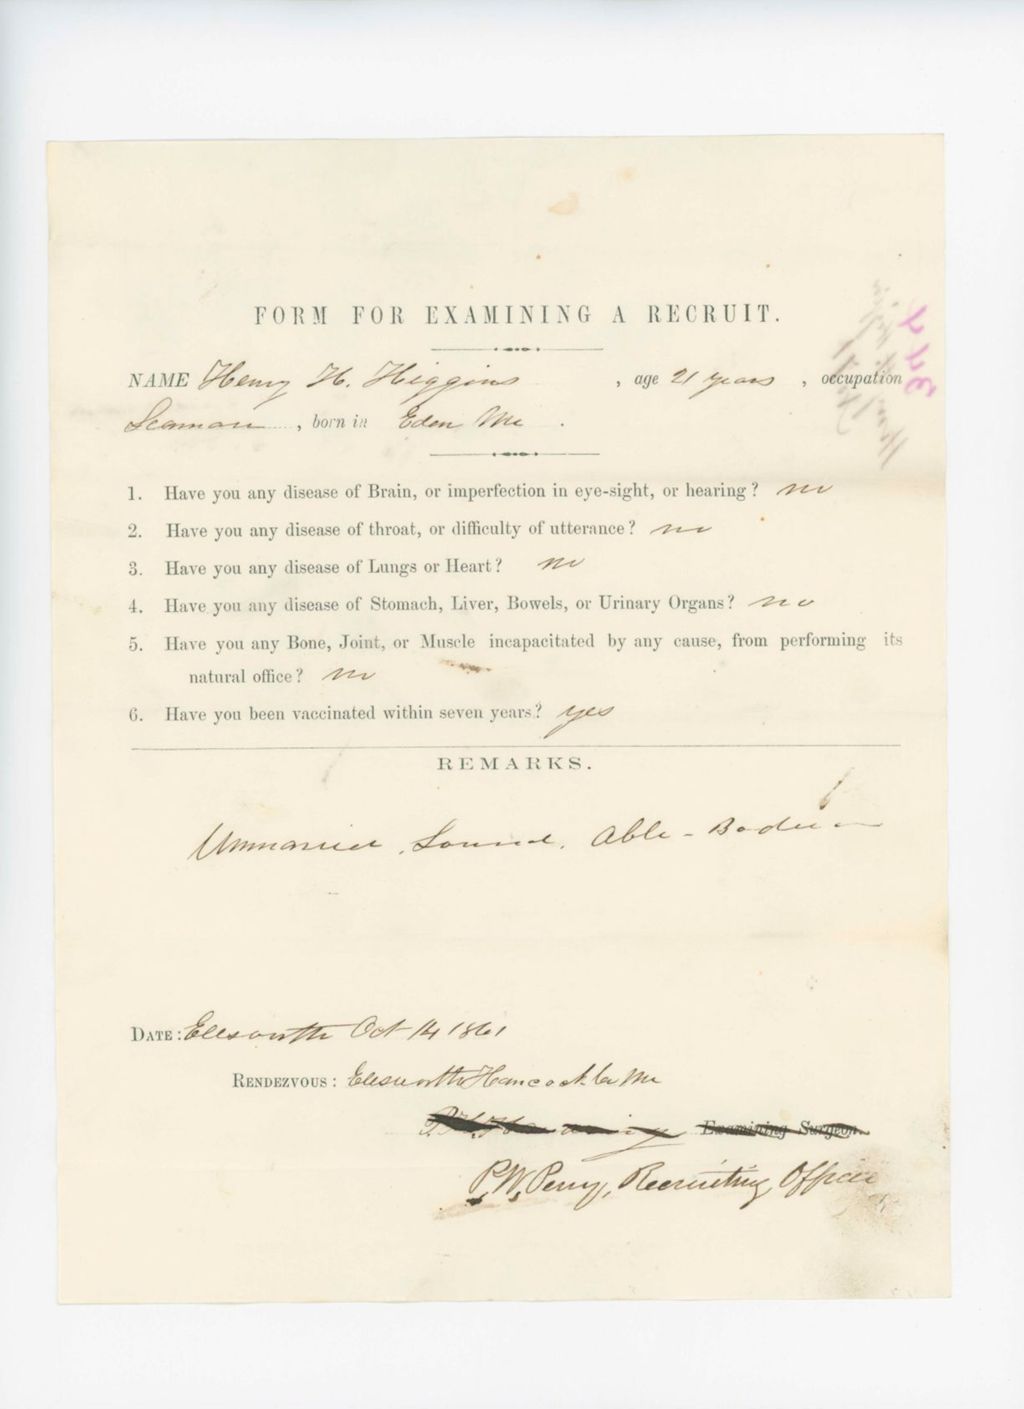 FORM FOR EXAMINING A RECRUIT.
NAME Henry H. Higgins , age 21 years , occupation
Seaman , born in Eden Me .
1. Have you any disease of Brain, or imperfection in eye-sight, or hearing? no
2. Have you any disease of throat, or difficulty of utterance? no
3. Have you any disease of Lungs or Heart? no
4. Have you any disease of Stomach, Liver, Bowels, or Urinary Organs? no
5. Have you any Bone, Joint, or Muscle incapacitated by any cause, from performing its
natural office? no
6. Have you been vaccinated within seven years? yes
REMARKS.
Unmarried, Sound, Able-Bodied
DATE: Ellsworth Oct 14 1861
RENDEZVOUS: Ellsworth Hancock Co Me
Examining Surgeon.
P. W. Perry, Recruiting Officer